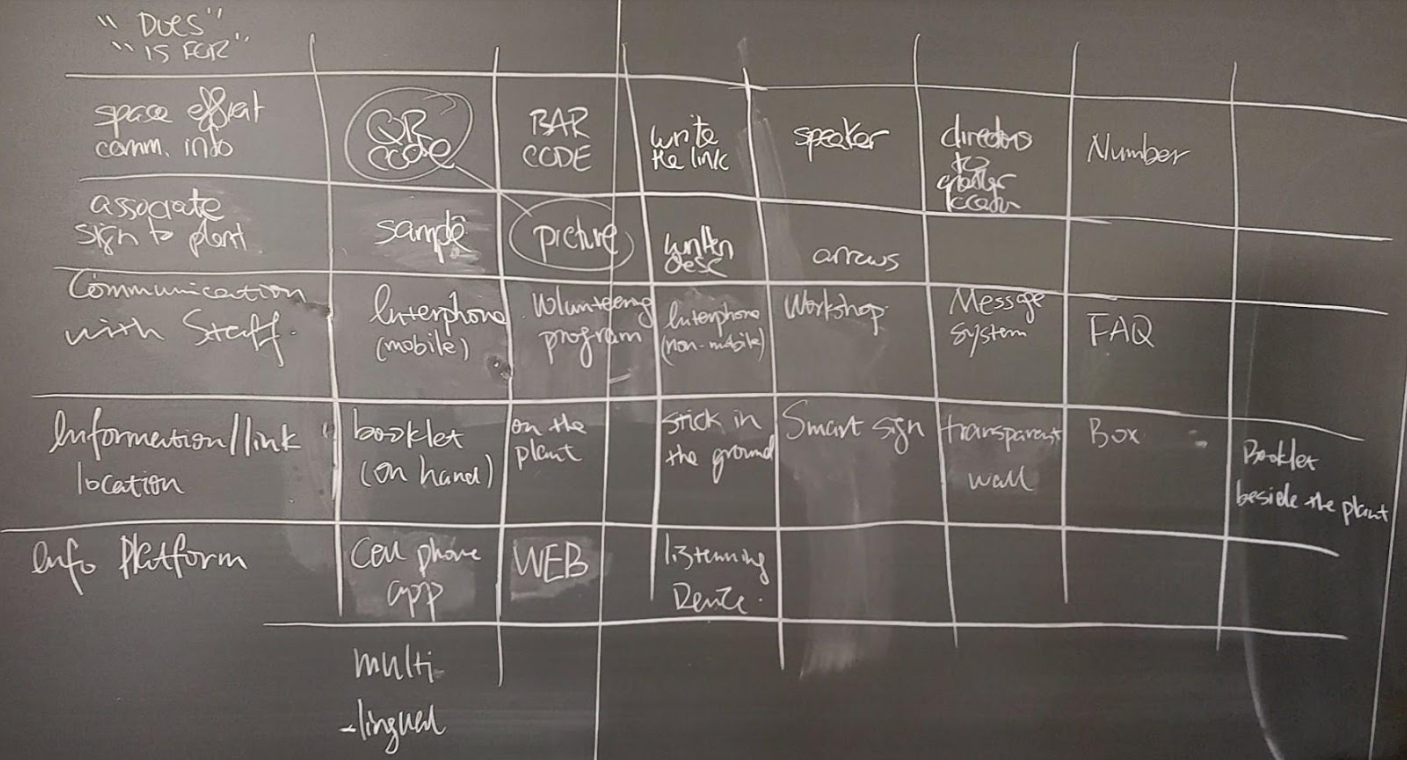 "DOES"
"IS FOR"
space effient
comm. info
QR
code
BAR
CODE
write
the link
speaker
to
Number
associate
sign to plant
sample
picture
written
desc
arrows
Communication
with Staff.
Interphone
(mobile)
Volunteering
program
Interphone
(non-mobile)
Workshop
Message
System
FAQ
Information/link
location
booklet
(on hand)
on the
plant
stick in
the ground
Smart sign
transparent
wall
Box
Booklet
beside the plant
Info Platform
Cell phone
app
WEB
listenning
Device.
multi
-lingual